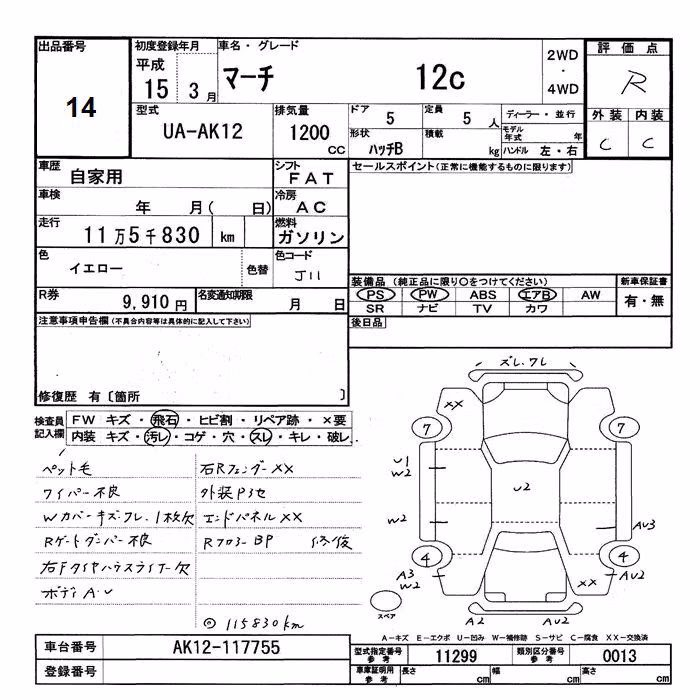 出品番号 初度登録年月 車名・グレード 2WD 評価点
平成 ・
14 15 3月 マーチ 12c 4WD R
型式 排気量 ドア 定員 ディーラー・並行 外装 内装
UA-AK12 1200 5 5 人 モデル年式 年 C C
CC 形状 ハッチB 積載 kg ハンドル 左・右
車歴 自家用 シフト FAT セールスポイント(正常に機能するものに限ります)
車検 年 月( 日) 冷房 AC
走行 11万5千830 km 燃料 ガソリン
色 イエロー 色替 色コード J11
装備品 (純正品に限り〇をつけてください) 新車保証書
R券 9,910円 名変通知期限 月 日 PS PW ABS エアB AW 有・無
SR ナビ TV カワ
注意事項申告欄(不具合内容等は具体的に記入して下さい) 後日品
修復歴 有〔箇所 〕
検査員 FW キズ・飛石・ヒビ割・リペア跡・×要
記入欄 内装 キズ・汚レ・コゲ・穴・スレ・キレ・破レ
ペット毛 右Rフェンダー××
ワイパー不良 外装Pセ
Wカバーキズワレ、1枚欠 エンドパネル××
Rゲートダンパー不良 Rフロアー BP 修復
右Fタイヤハウスライナー欠
ボディA・U
◎ 115830km
ズレ.ワレ
××
7 7
U1
W2
U2
W2 AU3
4 4
A3
W2 ×× AU2
スペア A2 AU2
A-キズ E-エクボ U-凹み W-補修跡 S-サビ C-腐食 XX-交換済
車台番号 AK12-117755 型式指定番号 参考 11299 類別区分番号 参考 0013
登録番号 車庫証明用 参考 長さ cm 幅 cm 高さ cm